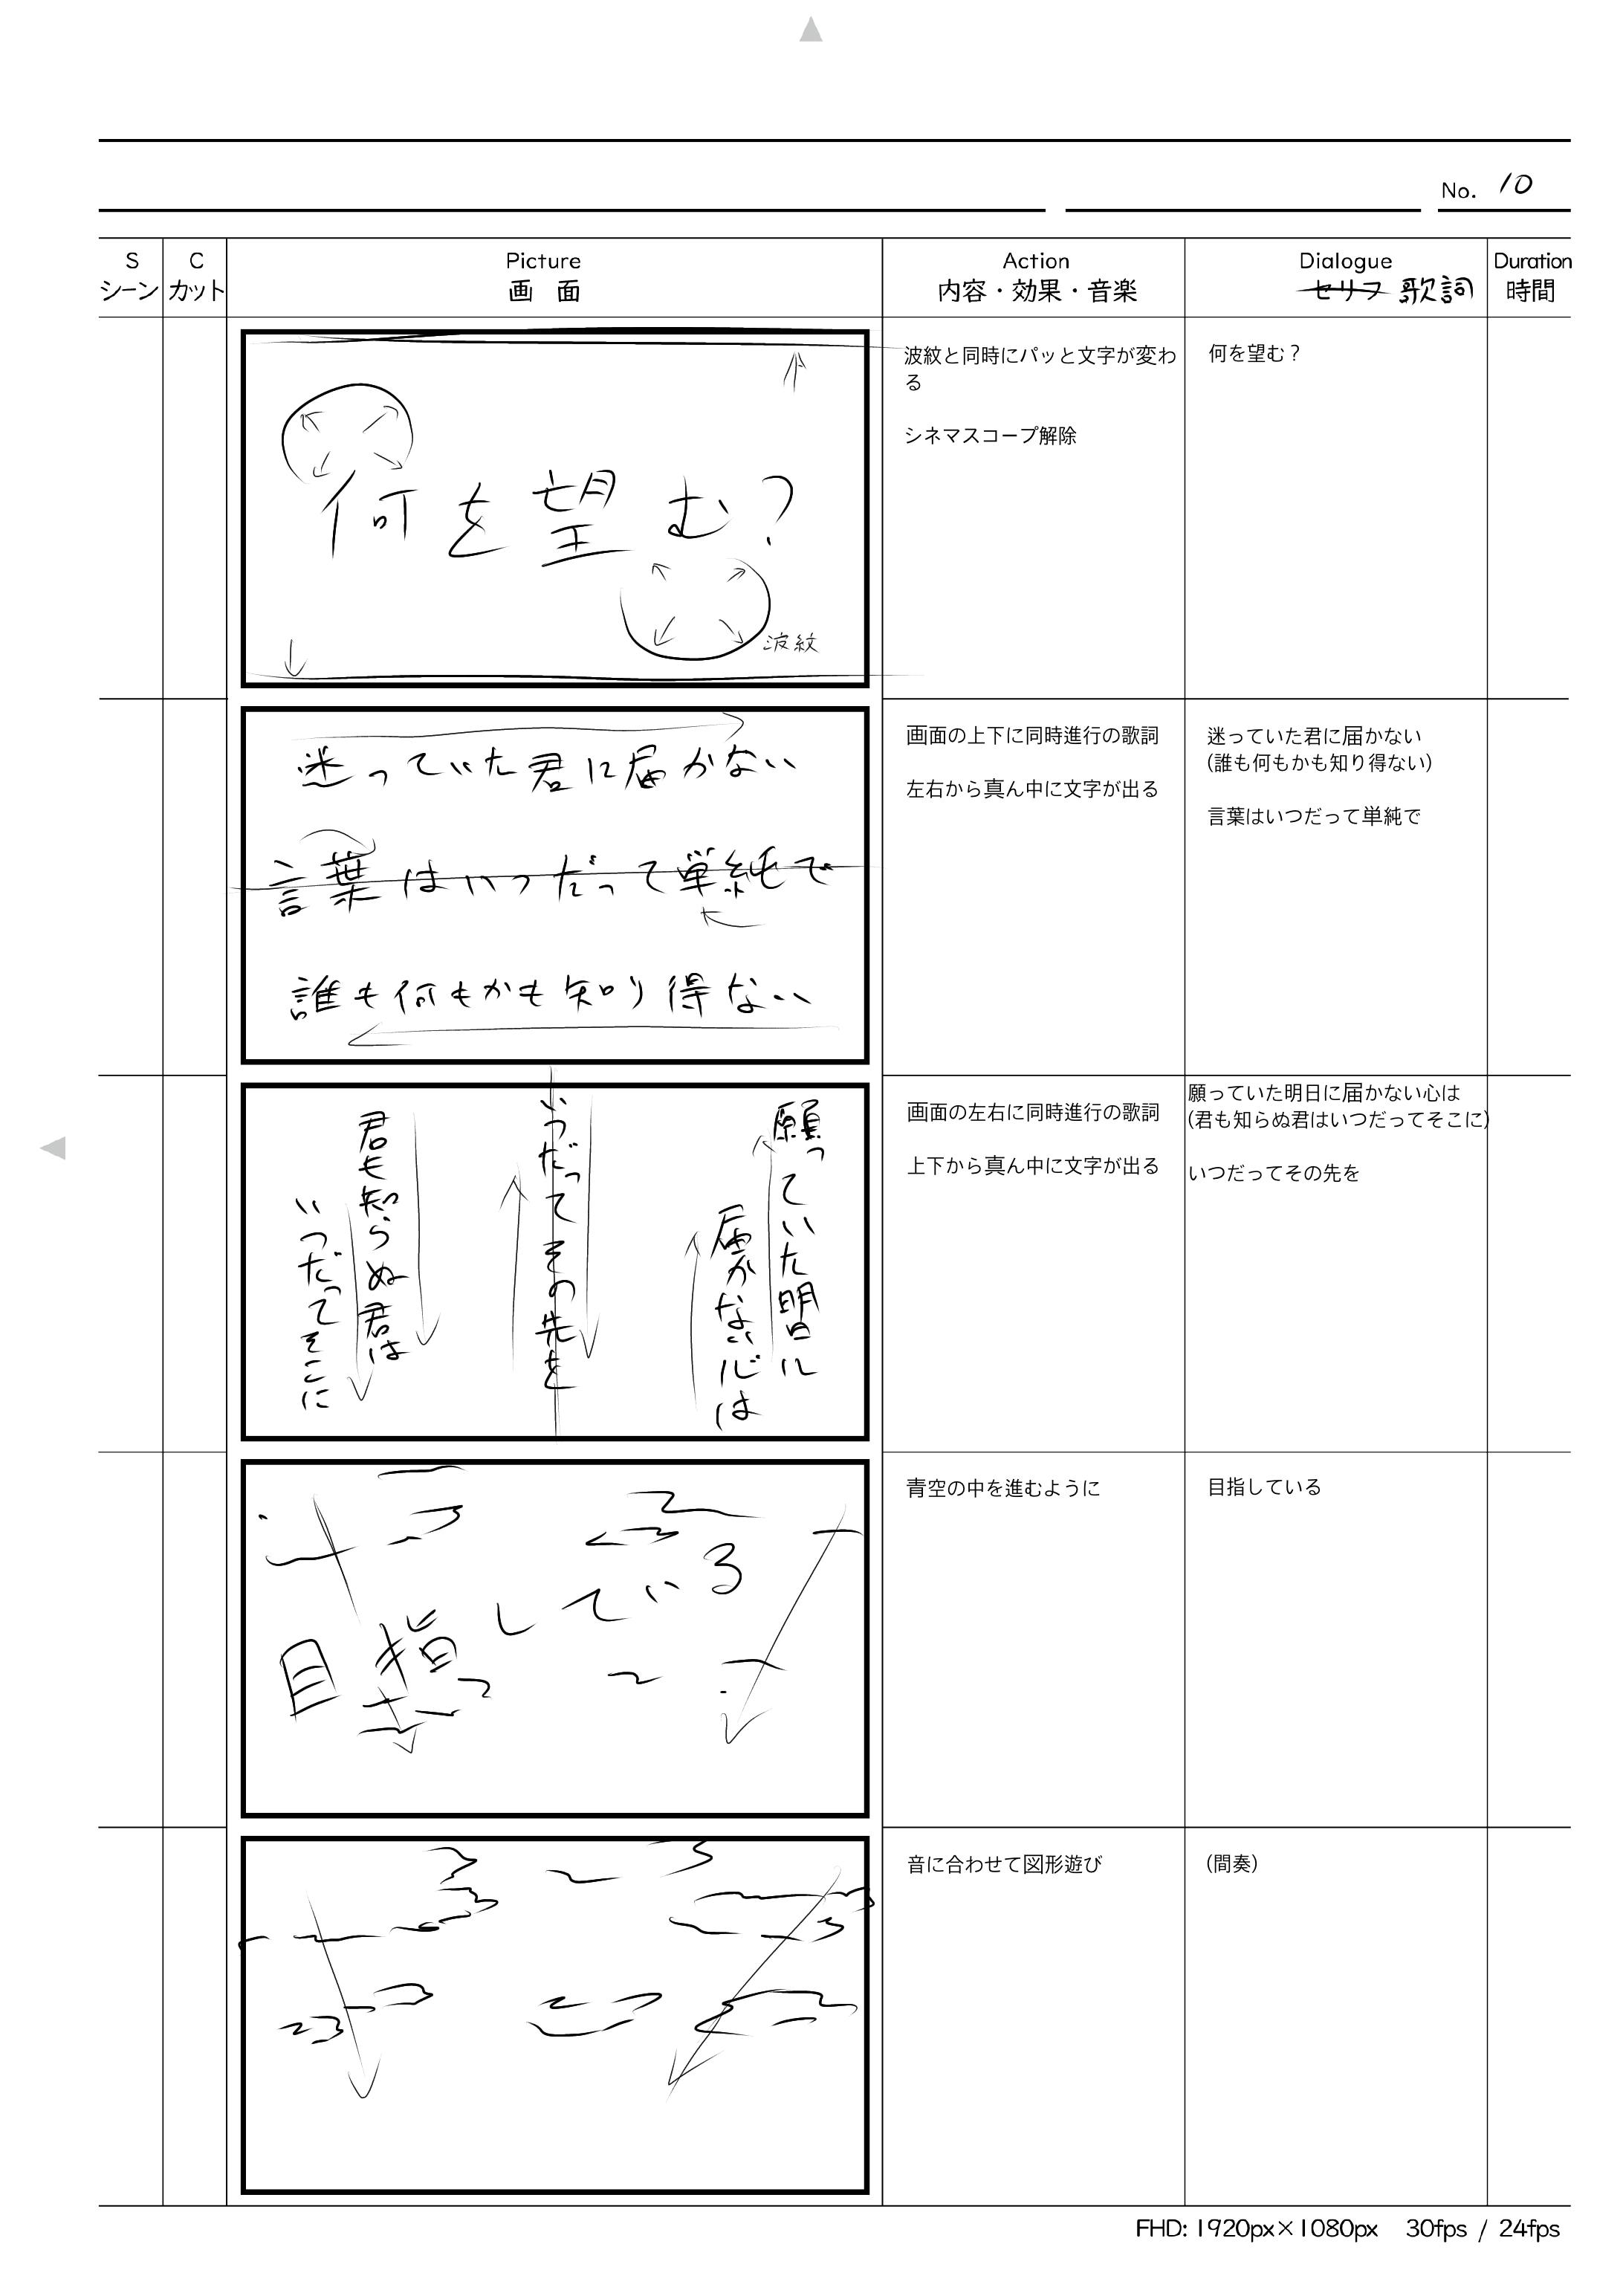 No. 10
S
シーン
C
カット
Picture
画 面
Action
内容・効果・音楽
Dialogue
セリフ 歌詞
Duration
時間
何を望む?
波紋
波紋と同時にパッと文字が変わ
る
シネマスコープ解除
何を望む?
迷っていた君に届かない
言葉はいつだって単純で
誰も何もかも知り得ない
画面の上下に同時進行の歌詞
左右から真ん中に文字が出る
迷っていた君に届かない
(誰も何もかも知り得ない)
言葉はいつだって単純で
願っていた明日に
届かない心は
いつだってその先を
君も知らぬ君は
いつだってそこに
画面の左右に同時進行の歌詞
上下から真ん中に文字が出る
願っていた明日に届かない心は
(君も知らぬ君はいつだってそこに)
いつだってその先を
目指している
青空の中を進むように
目指している
音に合わせて図形遊び
(間奏)
FHD: 1920px×1080px 30fps / 24fps